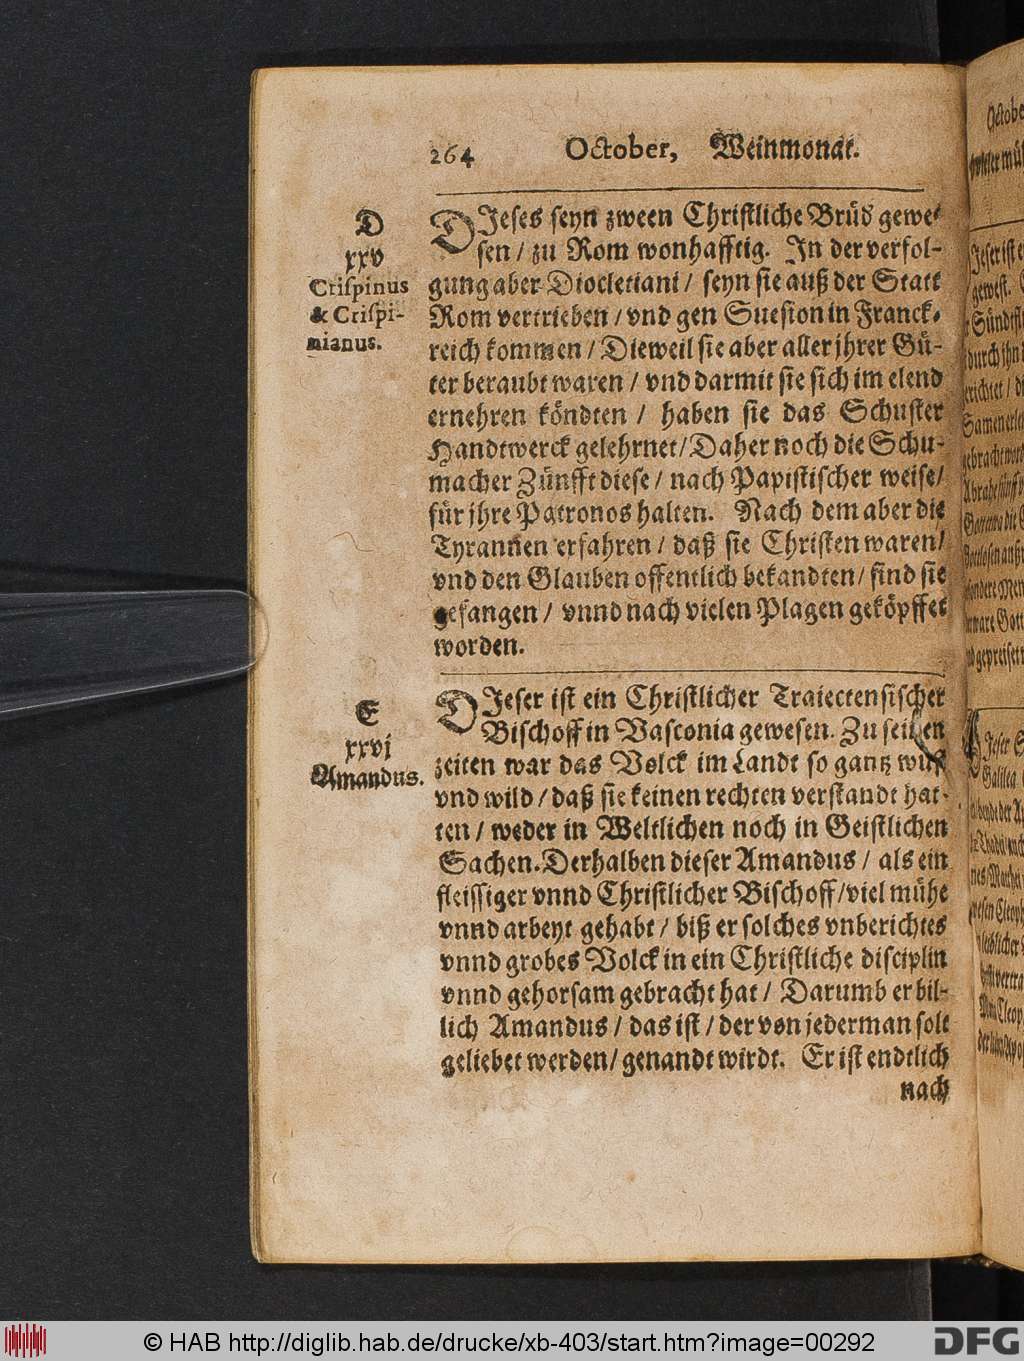 264 October, Weinmonat.
D
xxv
Crispinus
& Crispi-
nianus.
DIeses seyn zween Christliche Brüd gewe-
sen / zu Rom wonhafftig. In der verfol-
gung aber Diocletiani / seyn sie auß der Statt
Rom vertrieben / vnd gen Suesion in Franck-
reich kommen / Dieweil sie aber aller jhrer Gü-
ter beraubt waren / vnd darmit sie sich im elend
ernehren köndten / haben sie das Schuster
Handtwerck gelehrnet / Daher noch die Schu-
macher Zünfft diese / nach Papistischer weise /
für jhre Patronos halten. Nach dem aber die
Tyrannen erfahren / daß sie Christen waren /
vnd den Glauben offentlich bekandten / sind sie
gefangen / vnnd nach vielen Plagen geköpffet
worden.
E
xxvj
Amandus.
DIeser ist ein Christlicher Traiectensischer
Bischoff in Vasconia gewesen. Zu seinen
zeiten war das Volck im Landt so gantz wüst
vnd wild / daß sie keinen rechten verstandt hat-
ten / weder in Weltlichen noch in Geistlichen
Sachen. Derhalben dieser Amandus / als ein
fleissiger vnnd Christlicher Bischoff / viel mühe
vnnd arbeyt gehabt / biß er solches vnberichtes
vnnd grobes Volck in ein Christliche disciplin
vnnd gehorsam gebracht hat / Darumb er bil-
lich Amandus / das ist / der von jederman solt
geliebet werden / genandt wirdt. Er ist endtlich
nach
© HAB http://diglib.hab.de/drucke/xb-403/start.htm?image=00292
DFG